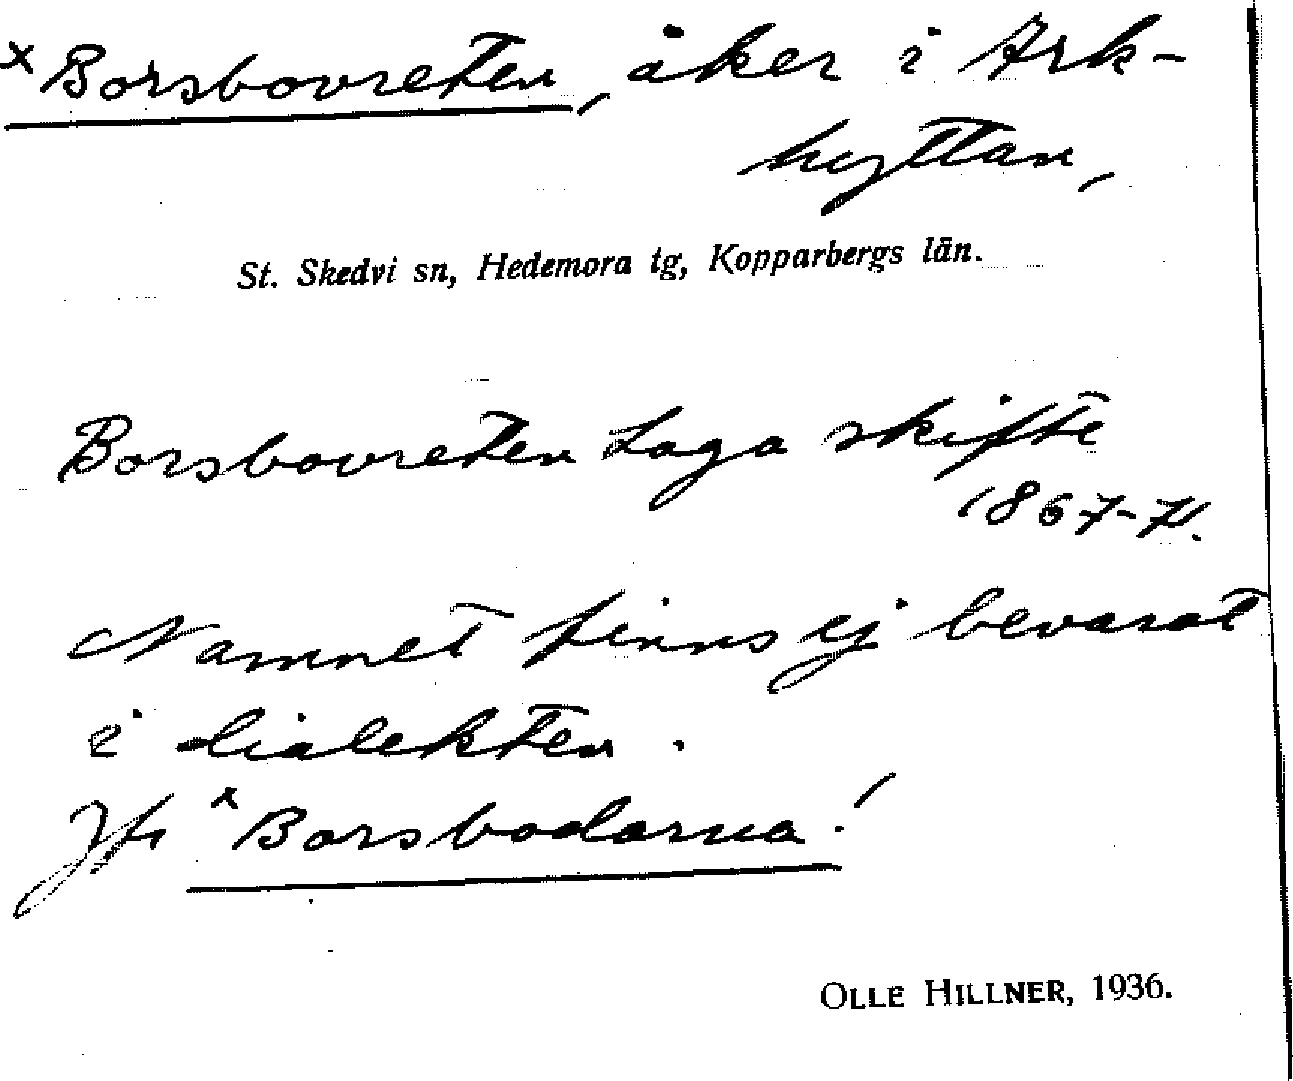 ×Borsbovreten, åker i Ark-
hyttan,
St. Skedvi sn, Hedemora tg, Kopparbergs län.
Borsbovreten Laga skifte
1867-71.
Namnet finns ej bevarat
i dialekten.
Jfr ×Borsbodarna!
OLLE HILLNER, 1936.